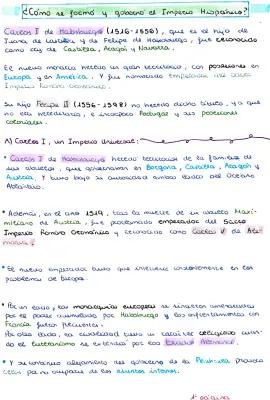 ¿Cómo se formó y gobernó el Imperio Hispánico?
Carlos I de Habsburgo (1516-1556), que es el hijo de
Juana de Castilla y de Felipe de Habsburgo, fue conocido
como rey de Castilla, Aragón y Navarra.
El nuevo monarca heredó un gran territorio, con posesiones en
Europa y en América. Y fue nombrado emperador del Sacro
Imperio Romano Germánico.
Su hijo Felipe II (1556-1598) no heredó dicho título, ya que
no era hereditario, e incorporó Portugal y sus posesiones
coloniales.
A) Carlos I, un Imperio Universal:
* Carlos I de Habsburgo heredó territorios de la familia de
sus abuelos, que gobernaban en Borgoña, Castilla, Aragón y
Austria, y tuvo bajo su autoridad ambos lados del Océano
Atlántico.
* Además, en el año 1519, tras la muerte de su abuelo Maxi-
miliano de Austria, fue proclamado emperador del Sacro
Imperio Romano Germánico y conocido como Carlos V de Ale-
mania.
* El nuevo emperador tuvo que intervenir constantemente en los
problemas de Europa.
* Por un lado, las monarquías europeas se sintieron amenazadas
por el poder acumulado por Habsburgo y los enfrentamientos con
Francia fueron frecuentes.
Por otro lado, la rivalidad tuvo un carácter religioso cuan-
do el luteranismo se extendió por los Estados Alemanes.
* Y su continuo alejamiento del gobierno de la Península provocó
por no ocuparse de los asuntos internos.
1ª página